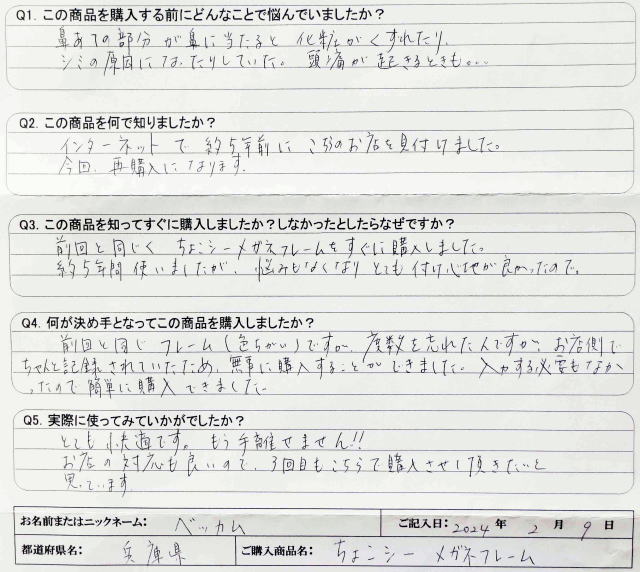 Q1. この商品を購入する前にどんなことで悩んでいましたか？
鼻あての部分が鼻に当たると 化粧がくずれたり、
シミの原因になったりしていた。 頭痛が起きるときも。。。
Q2. この商品を何で知りましたか？
インターネットで 約5年前に こちらのお店を見付けました。
今回、再購入になります。
Q3. この商品を知ってすぐに購入しましたか？しなかったとしたらなぜですか？
前回と同じく ちょこシーメガネフレームをすぐに購入しました。
約5年間 使いましたが、 悩みもなくなり とても 付け心地が良かったので。
Q4. 何が決め手となってこの商品を購入しましたか？
前回と同じ フレーム (色ちがい)ですが、 度数を忘れた人ですが、 お店側で
ちゃんと記録されていたため、無事に購入することができました。 入力する必要もなか
ったので 簡単に購入 できました。
Q5. 実際に使ってみていかがでしたか？
とても 快適です。 もう手離せません!!
お店の対応も良いので、 3回目もこちらで購入させて頂きたいと
思っています
お名前またはニックネーム： ベッカム ご記入日：2024 年 2 月 9 日
都道府県名： 兵庫県 ご購入商品名： ちょこシー メガネフレーム